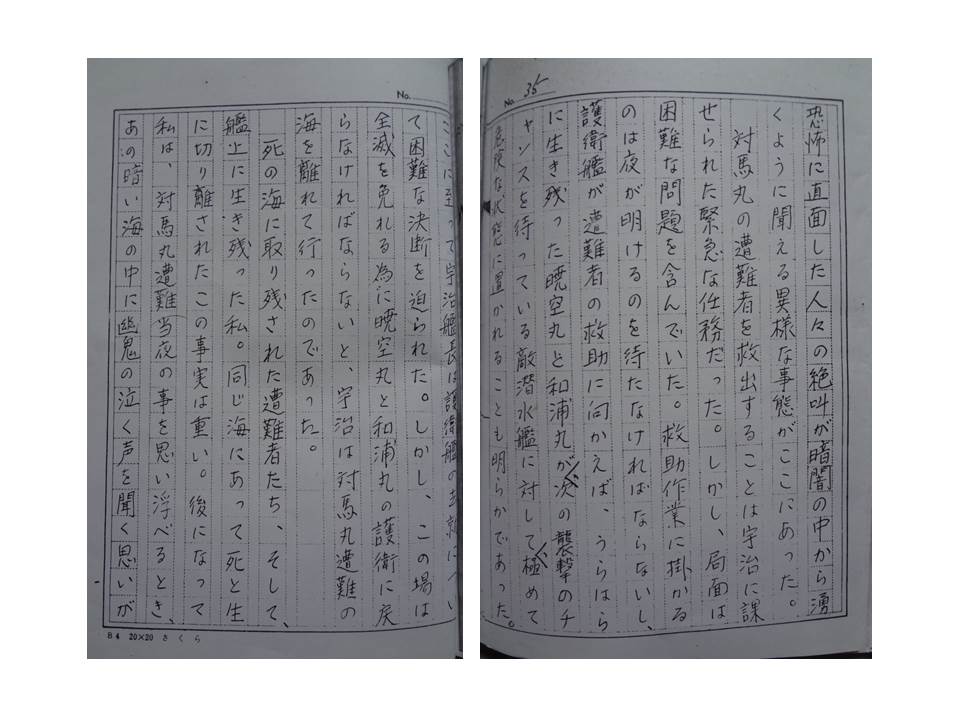 No. 35
恐怖に直面した人々の絶叫が暗闇の中から湧
くように聞える異様な事態がここにあった。
対馬丸の遭難者を救出することは宇治に課
せられた緊急な任務だった。しかし、局面は
困難な問題を含んでいた。救助作業に掛かる
のは夜が明けるのを待たなければならないし、
護衛艦が遭難者の救助に向かえば、うらはら
に生き残った暁空丸と和浦丸が次の襲撃のチ
ャンスを待っている敵潜水艦に対して極めて
危険な状態に置かれることも明らかであった。
No.
ここに至って宇治艦長は護衛艦の去就につい
て困難な決断を迫られた。しかし、この場は
全滅を免れる為に暁空丸と和浦丸の護衛に戻
らなければならないと、宇治は対馬丸遭難の
海を離れて行ったのであった。
死の海に取り残された遭難者たち、そして、
艦上に生き残った私。同じ海にあって死と生
に切り離されたこの事実は重い。後になって
私は、対馬丸遭難当夜の事を思い浮べるとき、
あの暗い海の中に幽鬼の泣く声を聞く思いが
B4 20×20 さくら